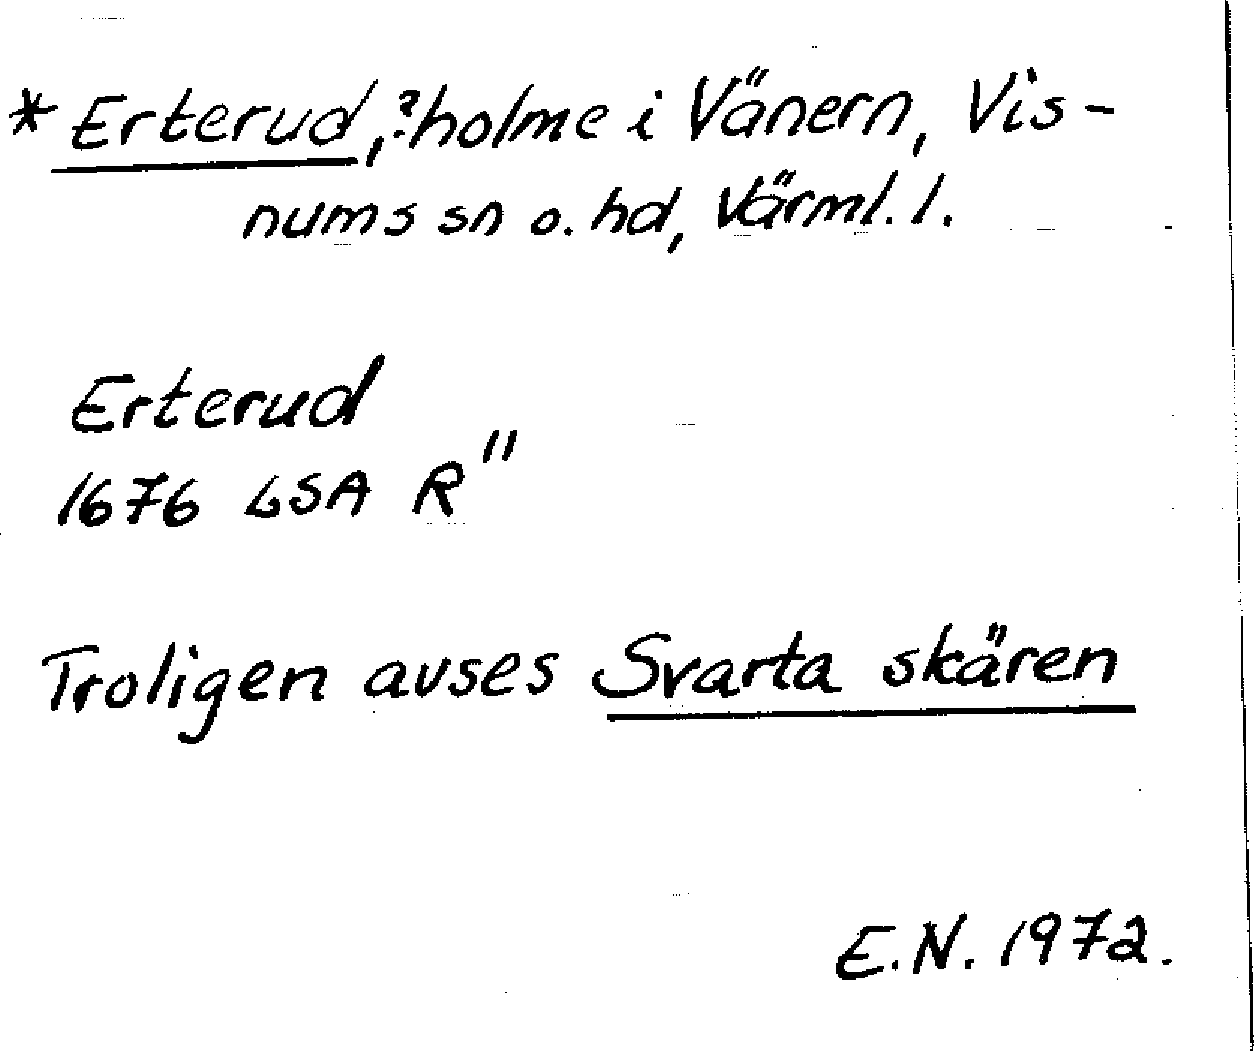 * Erterud, ?holme i Vänern, Vis-
nums sn o. hd, Värml. l.
Erterud
1676 LSA R"
Troligen avses Svarta skären
E.N. 1972.